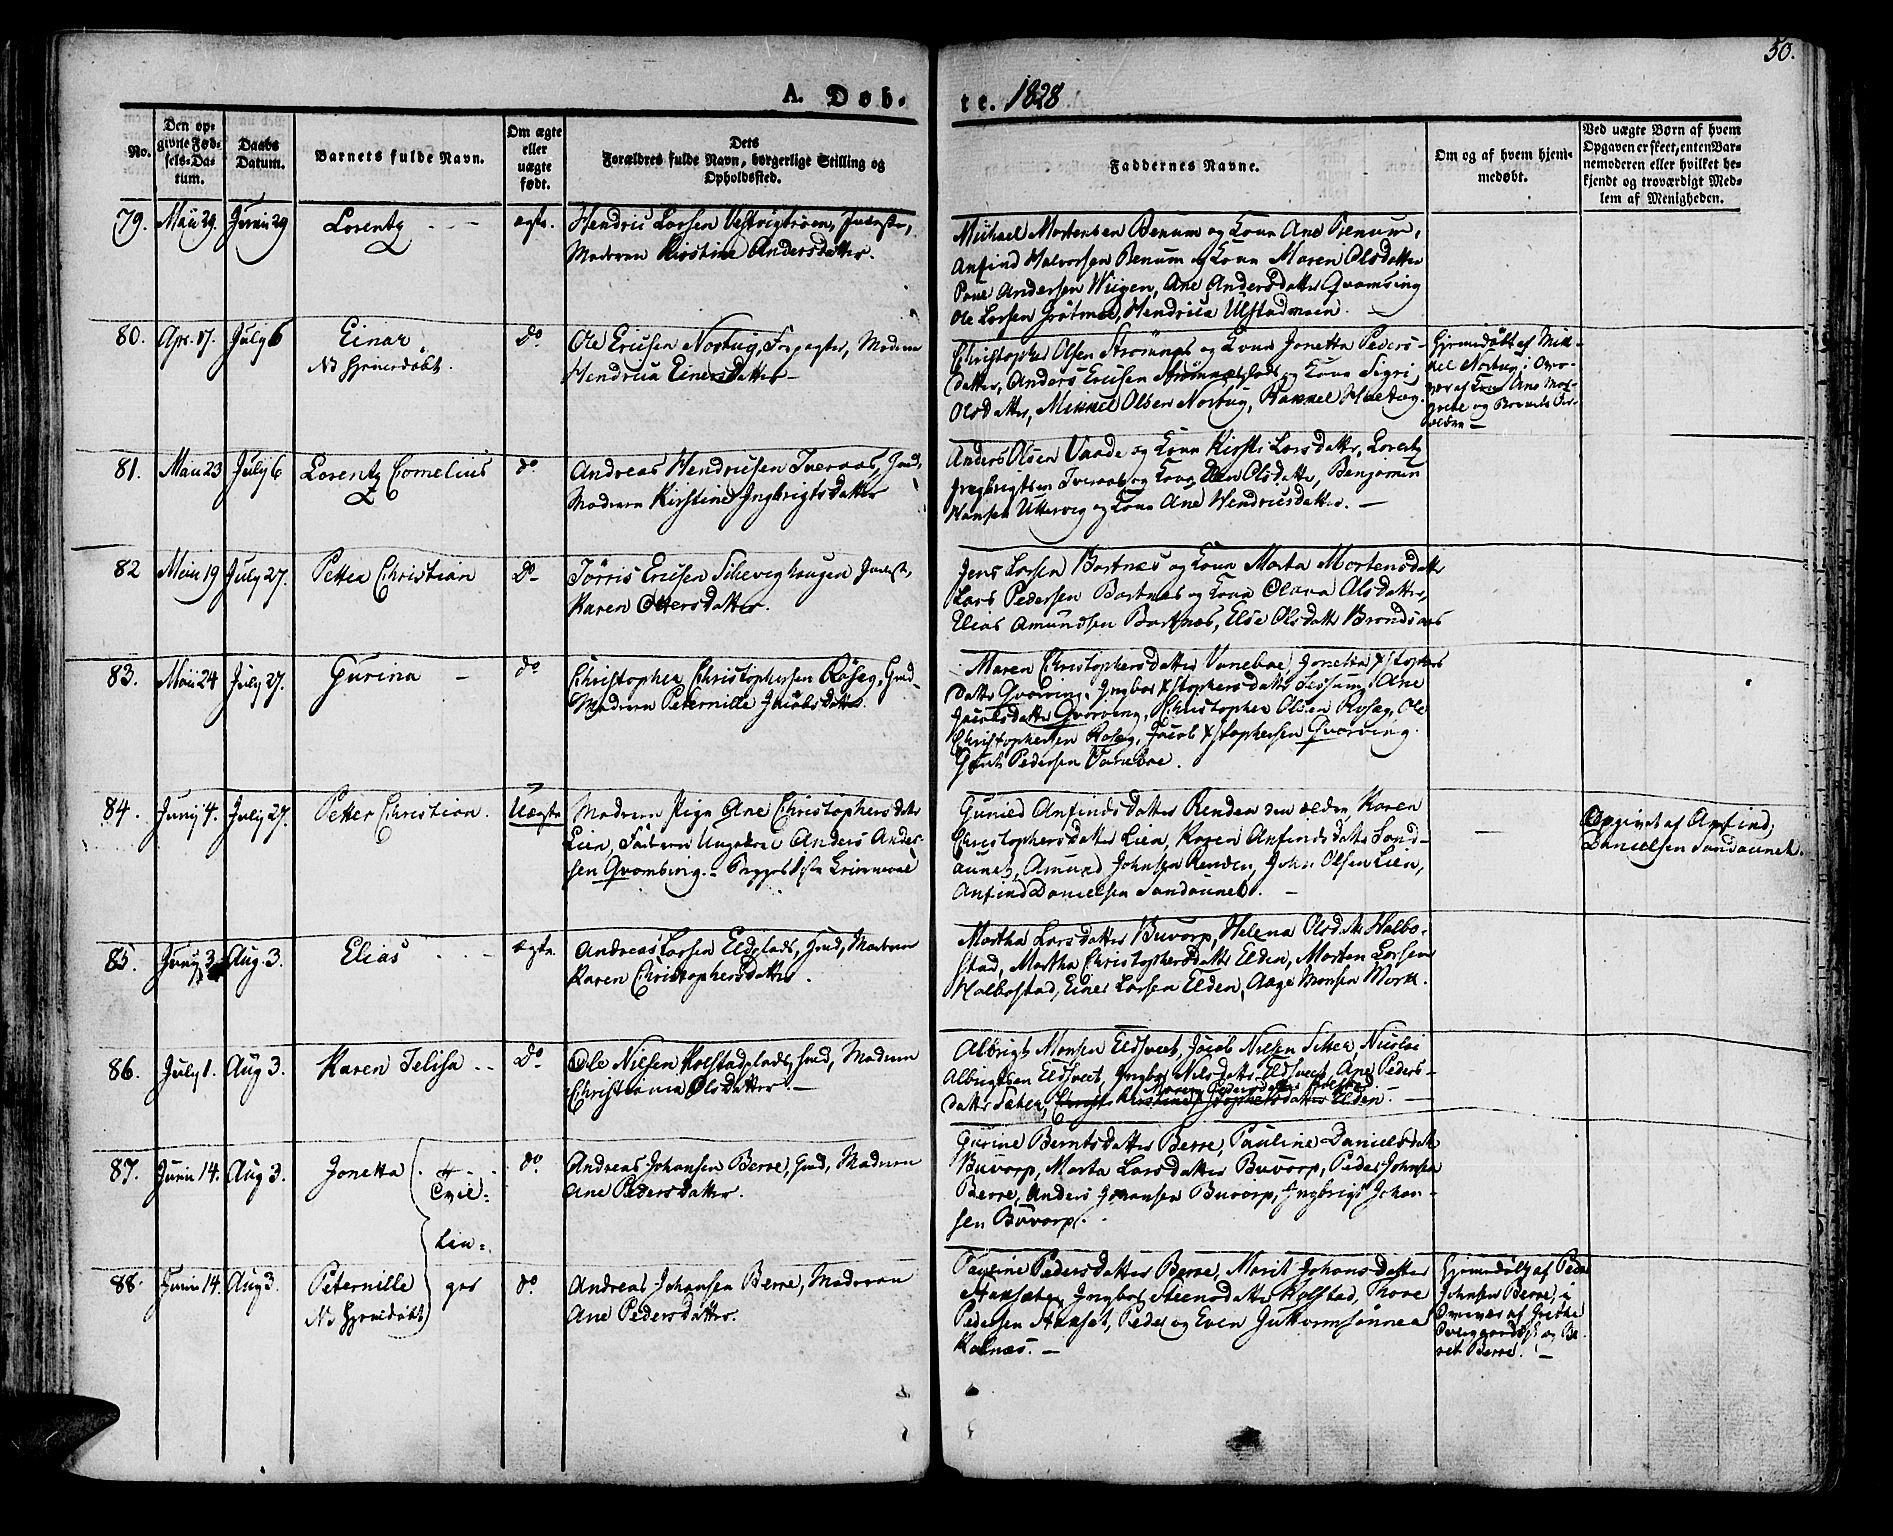 50.
A. Døb-
te. 1828
No.
Den op-
givne Fød-
sels-Da-
tum.
Daabs
Datum.
Barnets fulde Navn.
Om ægte
eller
uægte
født.
Dets
Forældres fulde Navn, borgerligt Stilling og
Opholdssted.
Faddernes Navne.
Om og af hvem hjem-
medøbt.
Ved uægte Børn af hvem
Opgaven er skeet, enten Bar-
nemoderen eller hvilket be-
kjendt og troværdigt Med-
lem af Menigheden.
79. Maii 29. Junii 29 Lorentz ægte.
Hendric Larsen
Moderen Kirstine Andersdatter.
Michael Mortensen Benum og Kona Ane Benum,
Anfind Halvorsen Benum og Kona Maren Olsdatter
Andersen Wiigen, Ane Andersdatter Qvamsing
Ole Larsen Grötmoe, Hendrica Ulstadmoen.
80. Apr. 17. July 6 Einar do
Nb Hjemedöbt.
Ole Ericsen Nortug, Forpagter, Moderen
Hendrica Einersdatter
Christopher Olsen Strömnes og Kona Jonetta Peders-
datter, Anders Ericsen og Kona Sigri
Olsdatter, Mikkel Olsen Nortug,
Hjemedöbt af Mik-
kel Nortug i Over-
vær af Kona Ane Mar-
grete og Barnets For-
ældre
81. Maii 23 July 6 Lorentz Cornelius do
Andreas Hendricsen Tveraas, Ind.
Moderen Kirstine Ingbrigtsdatter
Anders Olsen Vaade og Kona Kirsti Larsdatter, Lorentz
Ingebrigtsen Tveraas og Kona Olsdatter, Benjamin
Hansen Uttervig og Kona Ane Hendricsdatter.
82 Maii 19 July 27. Petter Christian do
Jörris Ericsen Inderst,
Karen Ottersdatter.
Jens Larsen Bartnæs og Kona Marta Mortensdatter
Lars Pedersen Bartnæs og Kona Olava Olsdatter,
Elias Amundsen Bartnæs, Else Olsdatter
83. Maii 24 July 27. Gurina do
Christopher Christophersen Röseg, Grd
Moderen Peternille Jacobsdatter.
Maren Christophersdatter Vaneboe, Jonetta Xstophers
datter Qvarving, Ingbor Xstophersdatter Sessum, Ane
Jacobsdatter Qvarving, Christopher Olsen Roseg, Ole
Christophersen Roseg, Jacob Xstophersen Qvarving.
Pedersen Vaneboe.
84. Juny 4. July 27. Petter Christian. Uægte
Moderen Pige Ane Christophersdatter
Lien, Faderen Ungekarl Anders Ander-
sen Qvamsing.
Gunild Anfindsdatter Renden den ældre, Karen
Christophersdatter Lien, Karen Anfindsdatter Sand-
aunet, Amund Johnsen Renden, John Olsen Lien,
Anfind Danielsen Sandaunet.
Opgivet af Anfind
Danielsen Sandaunet.
85. Juny 3 Aug. 3. Elias ægte.
Andreas Larsen Eldplads, Huusmand, Moderen
Karen Christophersdatter.
Martha Larsdatter Buvarp, Helena Olsdatter Halbo-
stad, Martha Christophersdatter Elden, Morten Larsen
Halbostad, Einer Larsen Elden, Aage Monsen Mork.
86. July 1. Aug 3. Karen Jelisa do
Ole Nilsen Kolstadplads, Huusmd, Moderen
Christianna Olsdatter.
Albrigt Monsen Eldsveet, Jacob Nilsen Sæther, Nicolai
Albrigtsen Eldsveet, Ingbor Nilsdatter Eldsveet, Ane Peders-
Maren Pedersdatter
datter Sæther, Elden.
87. Junii 14. Aug 3. Jonetta do
Tvil-
lin-
ger
Andreas Johansen Berre, Grd, Moderen
Ane Pedersdatter.
Gurine Berntsdatter Berre, Pauline Danielsdatt
Buvarp, Marta Larsdatter Buvarp, Peder Johnsen
Berre, Anders Johansen Buvarp, Ingbrigt Johan-
sen Buvarp.
88. Junii 14. Aug 3. Peternille do
Nb Hjemedöbt
Andreas Johansen Berre, Moderen
Ane Pedersdatter.
Pauline Pedersdatter Berre, Marit Johansdatter
Ingbor Steensdatter Kolstad, Thore
Pedersen Aasset, Peder og Even Guttormsönner
Kolnæs.
Hjemedöbt af Peder
Johnsen Berre, i
Overvær af Grethe
og Be-
ret Berre.